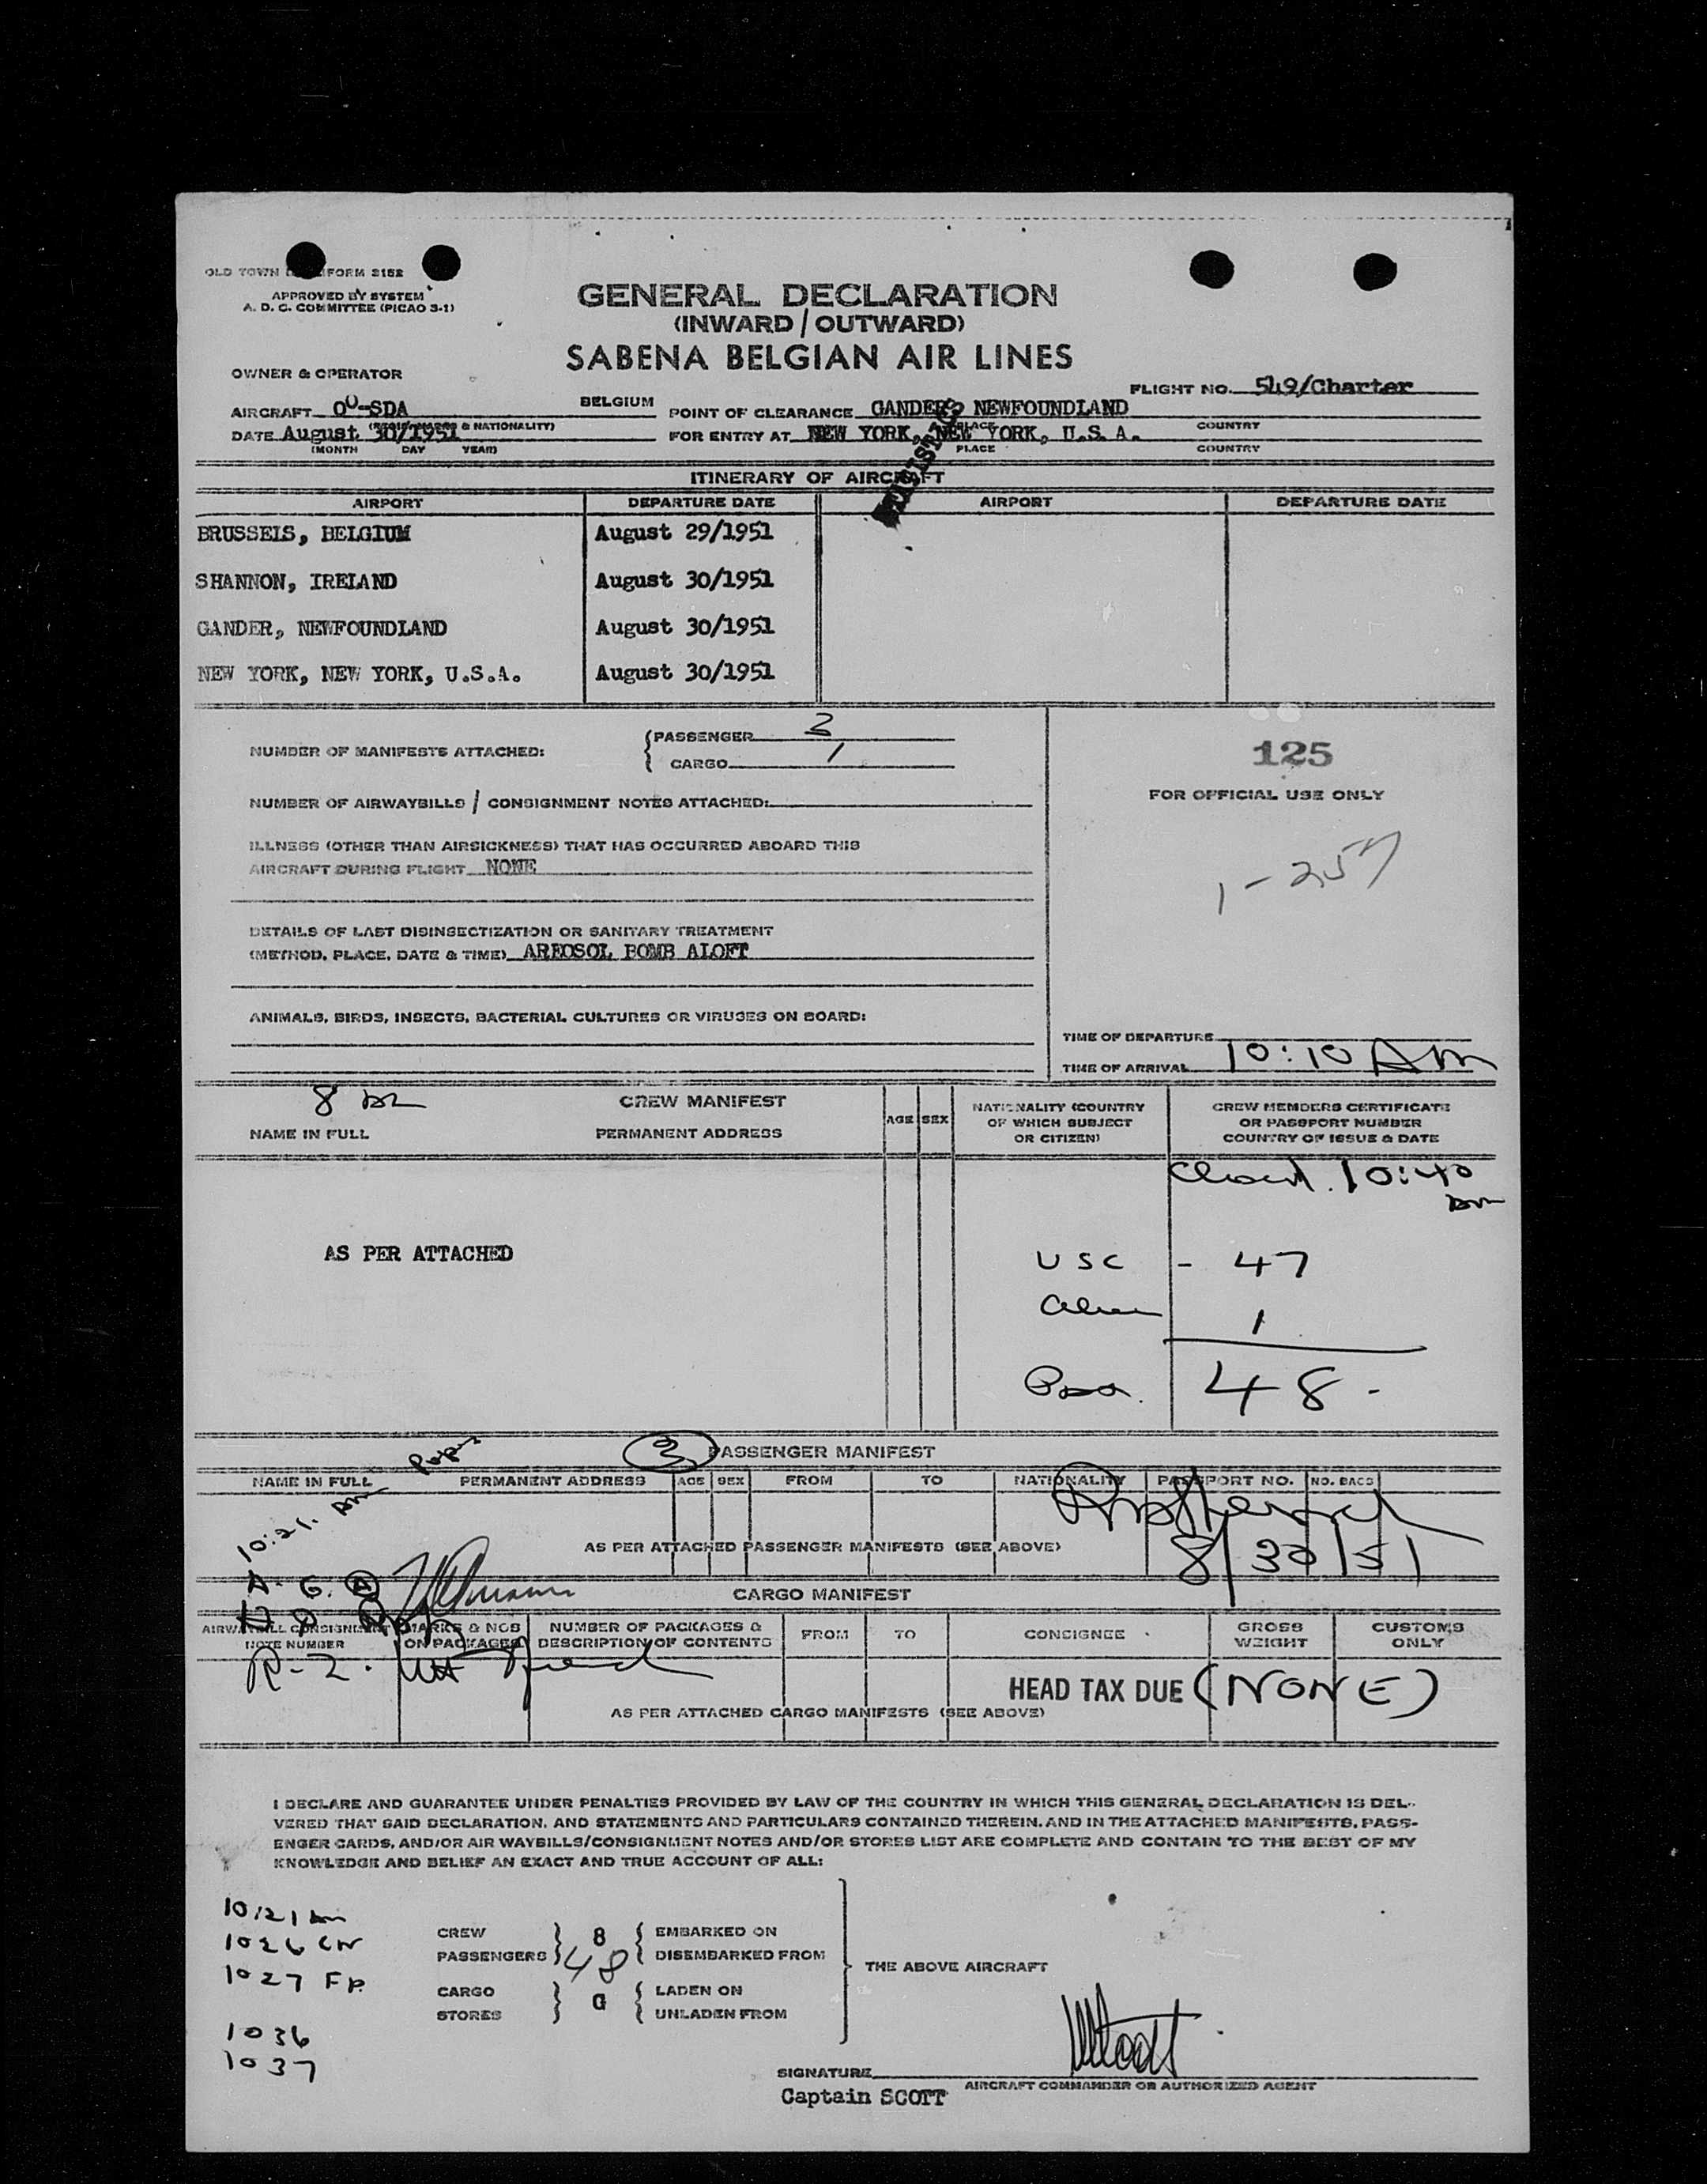 OLD TOWN FORM 3152
APPROVED BY SYSTEM
A. D. C. COMMITTEE (PICAO 3-1)
GENERAL DECLARATION
(INWARD / OUTWARD)
SABENA BELGIAN AIR LINES
OWNER & OPERATOR
FLIGHT NO. 549/Charter
AIRCRAFT OO-SDA BELGIUM POINT OF CLEARANCE GANDER, NEWFOUNDLAND
(REGIS. MARKS & NATIONALITY) PLACE COUNTRY
DATE August 30/1951 FOR ENTRY AT NEW YORK, NEW YORK, U.S.A.
(MONTH DAY YEAR) PLACE COUNTRY
ITINERARY OF AIRCRAFT
AIRPORT DEPARTURE DATE AIRPORT DEPARTURE DATE
BRUSSELS, BELGIUM August 29/1951
SHANNON, IRELAND August 30/1951
GANDER, NEWFOUNDLAND August 30/1951
NEW YORK, NEW YORK, U.S.A. August 30/1951
NUMBER OF MANIFESTS ATTACHED: PASSENGER 3
CARGO 1
125
FOR OFFICIAL USE ONLY
1-257
NUMBER OF AIRWAYBILLS / CONSIGNMENT NOTES ATTACHED:
ILLNESS (OTHER THAN AIRSICKNESS) THAT HAS OCCURRED ABOARD THIS
AIRCRAFT DURING FLIGHT NONE
DETAILS OF LAST DISINSECTIZATION OR SANITARY TREATMENT
(METHOD, PLACE, DATE & TIME) AREOSOL BOMB ALOFT
ANIMALS, BIRDS, INSECTS, BACTERIAL CULTURES OR VIRUSES ON BOARD:
TIME OF DEPARTURE
TIME OF ARRIVAL 10:10 AM
8
CREW MANIFEST
NAME IN FULL PERMANENT ADDRESS AGE SEX NATIONALITY (COUNTRY
OF WHICH SUBJECT
OR CITIZEN) CREW MEMBERS CERTIFICATE
OR PASSPORT NUMBER
COUNTRY OF ISSUE & DATE
10:40
AM
AS PER ATTACHED
USC - 47
Alien 1
Pass. 48 -
3 PASSENGER MANIFEST
NAME IN FULL PERMANENT ADDRESS AGE SEX FROM TO NATIONALITY PASSPORT NO. NO. BAGS
10:21 AM
AS PER ATTACHED PASSENGER MANIFESTS (SEE ABOVE)
8/30/51
A. G. A
CARGO MANIFEST
AIRWAYBILL CONSIGNMENT
NOTE NUMBER MARKS & NOS
ON PACKAGES NUMBER OF PACKAGES &
DESCRIPTION OF CONTENTS FROM TO CONSIGNEE GROSS
WEIGHT CUSTOMS
ONLY
R-2.
HEAD TAX DUE (NONE)
AS PER ATTACHED CARGO MANIFESTS (SEE ABOVE)
I DECLARE AND GUARANTEE UNDER PENALTIES PROVIDED BY LAW OF THE COUNTRY IN WHICH THIS GENERAL DECLARATION IS DEL-
VERED THAT SAID DECLARATION, AND STATEMENTS AND PARTICULARS CONTAINED THEREIN, AND IN THE ATTACHED MANIFESTS, PASS-
ENGER CARDS, AND/OR AIR WAYBILLS/CONSIGNMENT NOTES AND/OR STORES LIST ARE COMPLETE AND CONTAIN TO THE BEST OF MY
KNOWLEDGE AND BELIEF AN EXACT AND TRUE ACCOUNT OF ALL:
10:21 AM
1026
1027 FP.
1036
1037
CREW 8 EMBARKED ON
PASSENGERS 48 DISEMBARKED FROM
THE ABOVE AIRCRAFT
CARGO G LADEN ON
STORES UNLADEN FROM
SIGNATURE
AIRCRAFT COMMANDER OR AUTHORIZED AGENT
Captain SCOTT